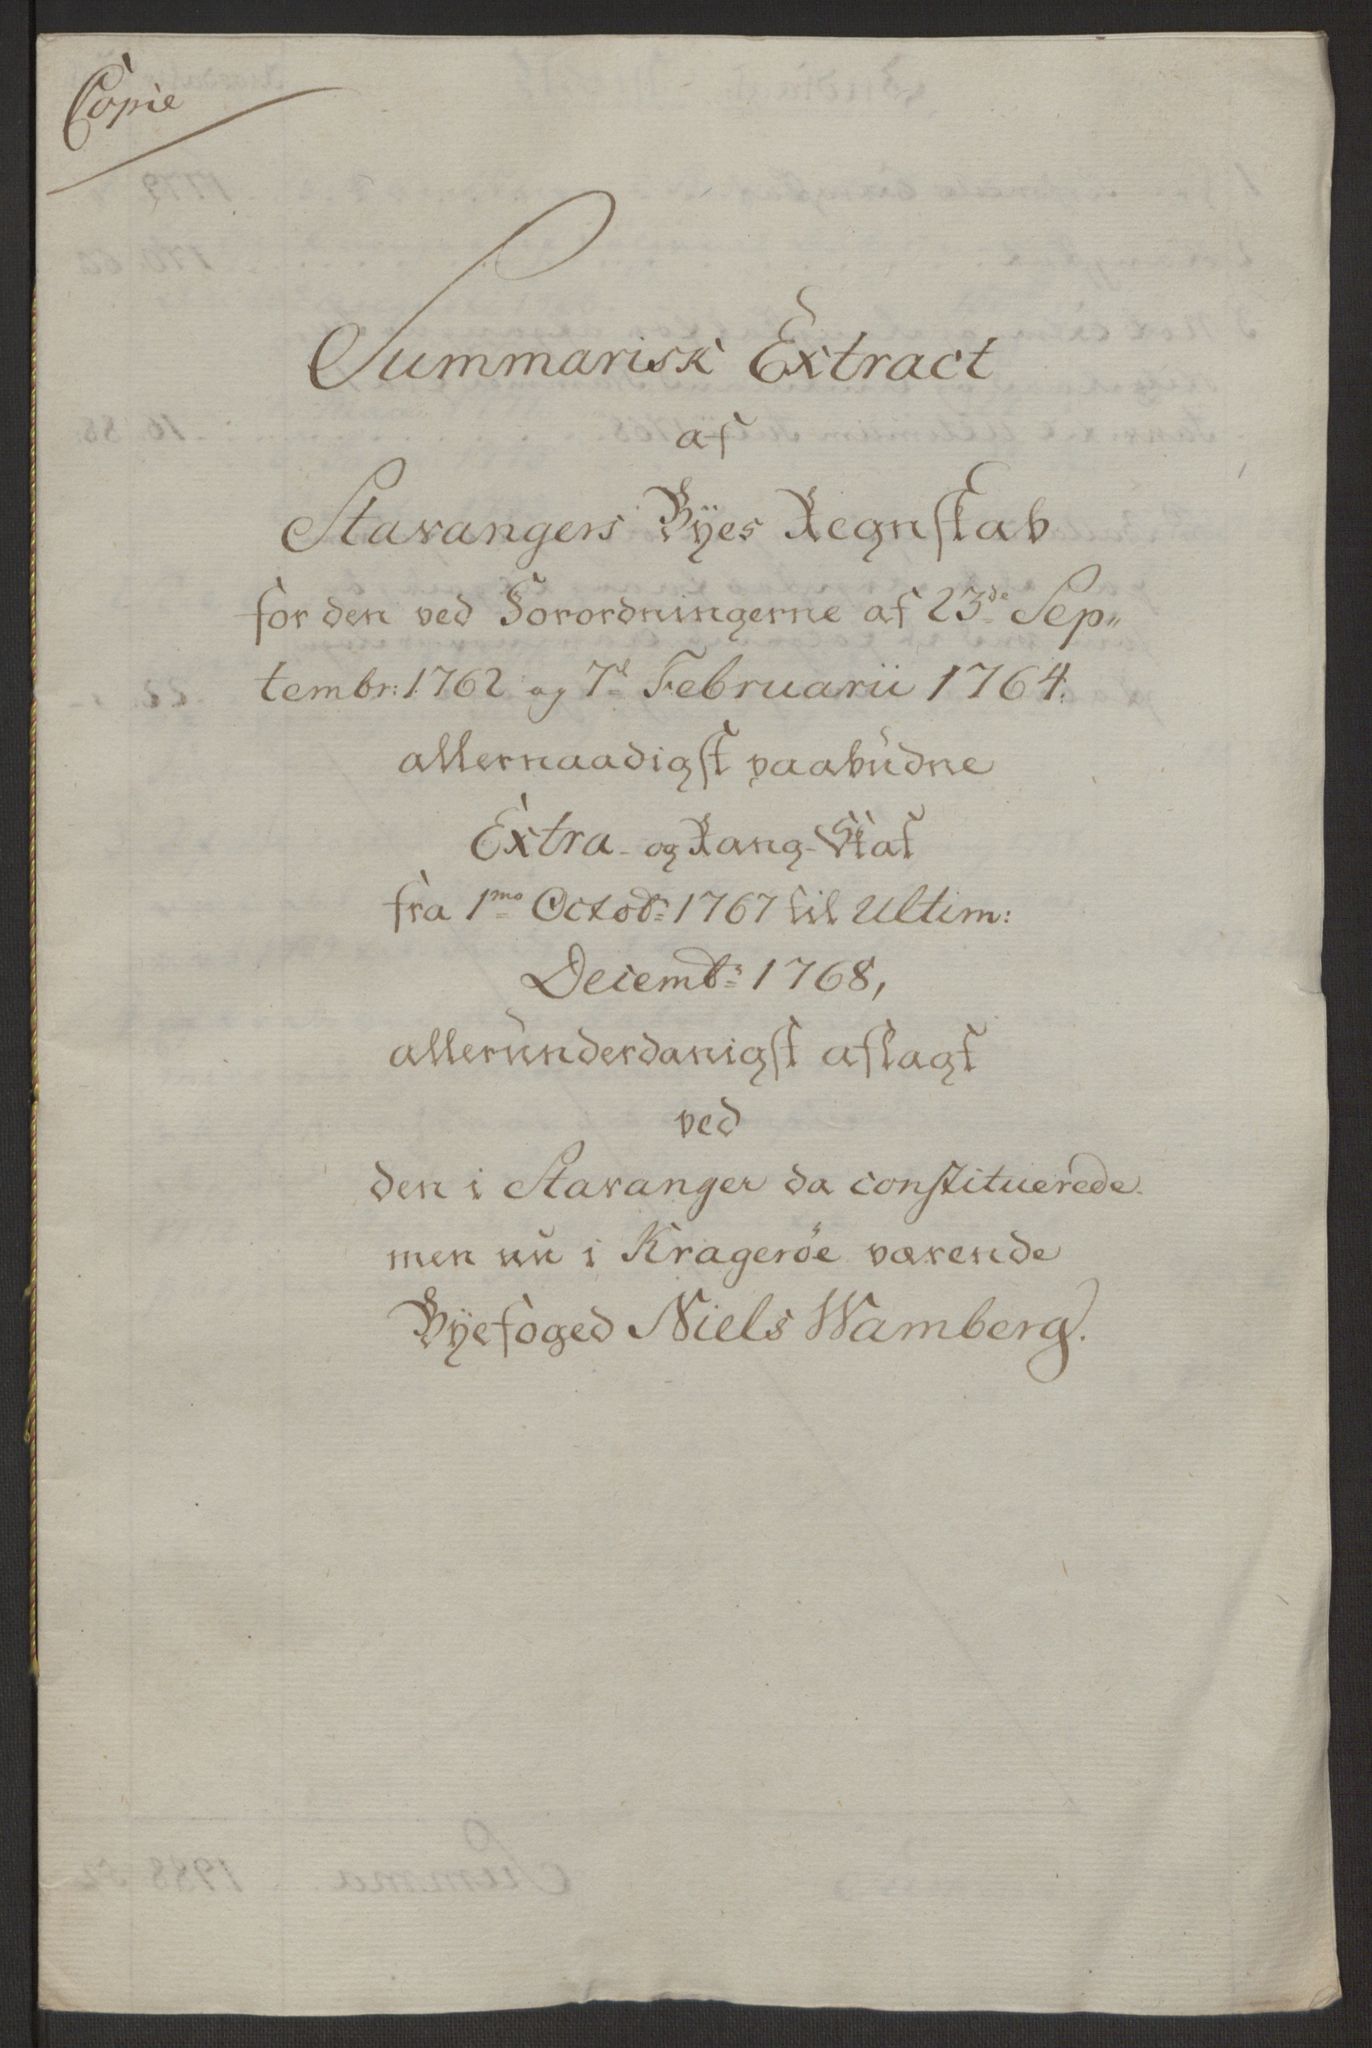 Copie
Summarisk Extract
af
Stavangers Byes Regnskab
for den ved Forordningerne af 23de Sep„
tembr: 1762 og 7de Februarii 1764.
allernaadigst paabudne
Extra- og Rang-Skat
fra 1mo Octobr: 1767 til Ultim:
Decembr: 1768,
allerunderdanigst aflagt
ved
den i Stavanger da constituerede
men nu i Kragerøe værende
Byefoged Niels Wamberg.